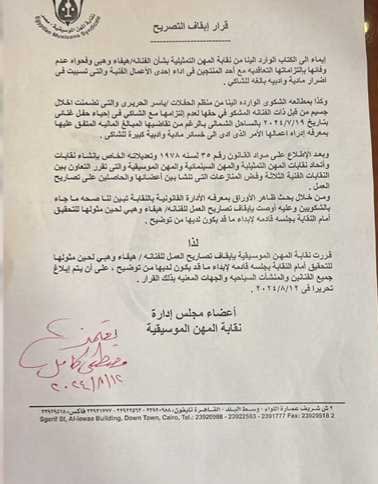 نقابة المهن الموسيقية
Egyptian Musicians Syndicate
قرار إيقاف التصريح
إيماء الى الكتاب الوارد الينا من نقابة المهن التمثيلية بشأن الفنانه/هيفاء وهبى وفحواه عدم
وفائها بإلتزاماتها التعاقديه مع أحد المنتجين فى اداء إحدى الأعمال الفنية والتى تسببت فى
اضرار مادية وادبيه بالغه للشاكي.
وكذا بمطالعه الشكوى الوارده الينا من منظم الحفلات /ياسر الحريرى والتى تضمنت اخلال
جسيم من قبل ذات الفنانه المشكو فى حقها لعدم إلتزامها مع الشاكي فى إحياء حفل غنائى
بتاريخ ٢٠٢٤/٧/١٩ بالساحل الشمالى بالرغم من تقاضيها المبالغ الماليه المتفق عليها
بمعرفه إدراه اعمالها الأمر الذى ادى الى خسائر مادية وادبية كبيرة للشاكي.
وبعد الإطلاع على مواد القانون رقم ٣٥ لسنه ١٩٧٨ وتعديلاته الخاص بإنشاء نقابات
واتحاد نقابات المهن التمثيلية والمهن السينمائية والمهن الموسيقية والتى تقرر التعاون بين
النقابات الفنية الثلاثة وفض المنازعات التى تنشأ بين أعضائها والحاصلين على تصاريح
العمل .
ومن خلال بحث ظاهر الأوراق بمعرفه الأدارة القانونية بالنقابة تبين لنا صحه ما جاء
بالشكويين وعليه أوصت بإيقاف تصاريح العمل للفنانه/ هيفاء وهبى لحين مثولها للتحقيق
أمام النقابة بجلسه قادمه لإبداء ما قد يكون لديها من توضيح .
لذا
قررت نقابة المهن الموسيقية بإيقاف تصاريح العمل للفنانه / هيفاء وهبي لحين مثولها
للتحقيق أمام النقابة بجلسه قادمه لإبداء ما قد يكون لديها من توضيح ، على أن يتم إبلاغ
جميع الفنادق والمنشآت السياحيه والجهات المعنيه بذلك القرار .
تحريرا فى ٢٠٢٤/٨/١٢
أعضاء مجلس إدارة
نقابة المهن الموسيقية
يعتمد
مصطفى كامل
٢٠٢٤/٨/١٢
٢ ش شريف عمارة اللواء - وسط البلد - القاهرة تليفون: ٢٣٩٢٠٩٨٨ - ٢٣٩٢٢٥٩٣ - ٢٣٩١٧٧٧ فاكس: ٢٣٩٢٩٥١٨
Sgerif St, Al-lewaa Building, Down Town, Cairo, Tel: 23920988 - 23922593 - 2391777 Fax: 23929518 2